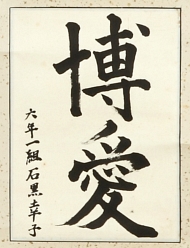 博愛
六年一組石黒幸子